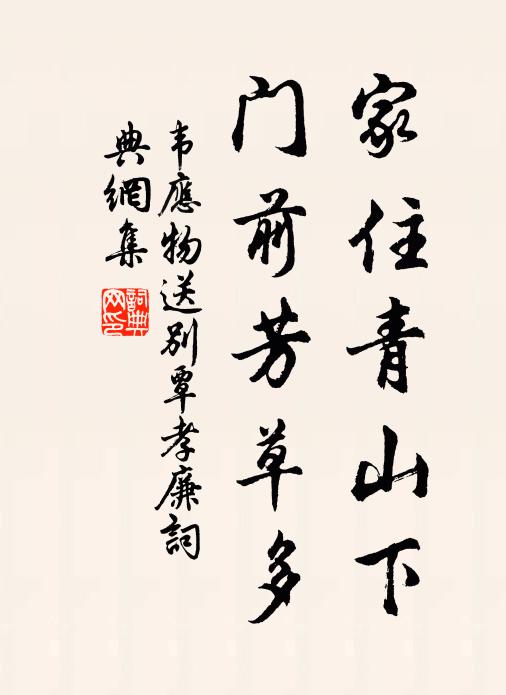 家住青山下
门前芳草多
韦應物送别覃孝廉詞
典網集
詞典网印